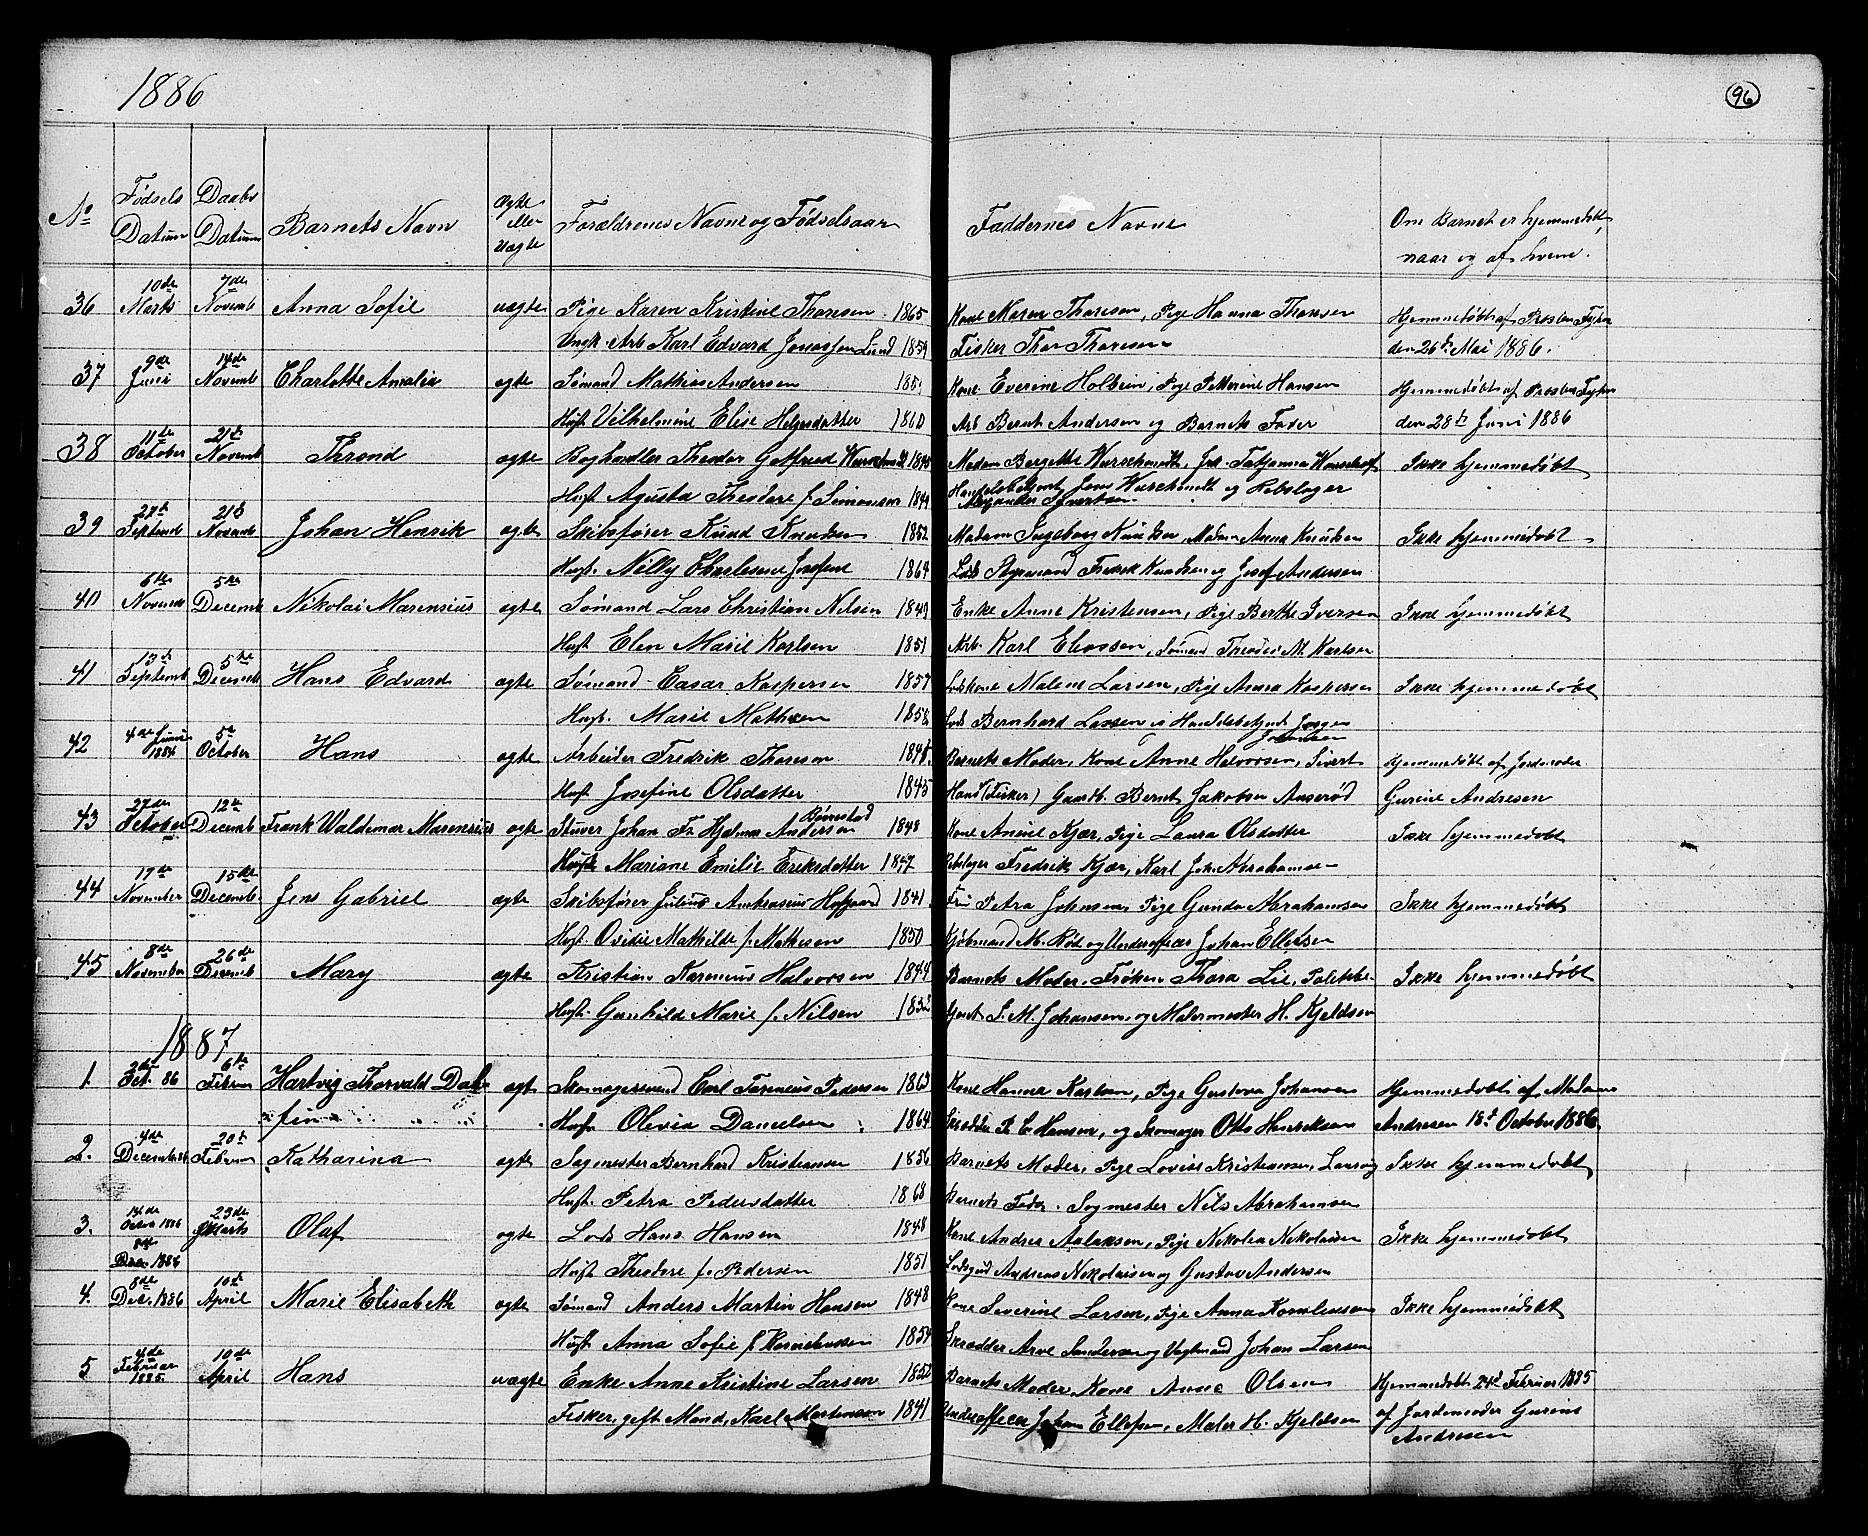 1886
96
No Fødsels Datum Daabs Datum Barnets Navn ægte eller uægte Forældrenes Navne og Fødselsaar Faddernes Navne Om Barnet er hjemmedøbt, naar og af hvem.
10de 7de
36 Marts Novemb Anna Sofie uægte Pige Karen Kristine Thoresen 1865 Kone Maren Thoresen, Pige Hanna Thoresen Hjemmedøbt af Presten
Ungk. Arb Karl Edvard Lund Fisker Thor Thoresen den 26t Mai 1886.
9de 14de
37 Juni Novemb Charlotte Amalia ægte Sømand Mathias Andersen Kone Everine Holbein, Pige Petterine Hansen Hjemmedøbt af Presten
Hust Vilhelmine Elise Helgesdatter 1860 Arb Bernt Andersen og Barnets Fader den 28t Juni 1886
11te 21de
38 October Novemb Thrond ægte Boghandler Theodor Gotfried Madam Bergette Wurschmidt, Ikke hjemmedøbt
Hust Agusta Theodore f. Simonsen 1849 Handelsbetjent Jens Wurschmidt og Rebslager
Sivertsen
39 Septemb Novemb Johan Henrik ægte Skibsfører Knud Knudsen 1852 Madam Ingeborg Knudsen, Madam Anna Knudsen Ikke hjemmedøbt
Hust. Nelly Charlesine Josefine 1864 Fredrik Knudsen og Josef Andersen
6te 5te
40 Novemb Decemb Nikolai Marensius ægte Sømand Lars Christian Nilsen 1849 Enke Anne Kristensen, Pige Berthe Iversen Ikke hjemmedøbt
Hust Elen Marie Karlsen 1851 Arb. Karl Eliassen, Sømand M. Karlsen
13de 5te
41 Septemb Decemb Hans Edvard ægte Sømand Casar Kaspersen 1857 Lodskone Malene Larsen, Pige Anna Kaspersen Ikke hjemmedøbt
Hust. Marie Mathisen 1858 Lods Bernhard Larsen og Handelsbetjent
4de Juni 5te
42 1884 October Hans ægte Arbeider Fredrik Thoresen 1848 Barnets Moder, Kone Anne Halvorsen, Sivert Hjemmedøbt af Jordmoder
Hust Josefine Olsdatter 1845 (Fisker) Gaardb. Bernt Jakobsen Aaserød Gurine Andresen
27de 12te
43 October Decemb Frank Waldemar Marensius ægte Stuver Johan Fr. Hjalmar Andersen 1848 Kone Anine Kjær, Pige Laura Olsdatter Ikke hjemmedøbt
Hust Mariane Emilie Eriksdatter 1847 Rebslager Fredrik Kjær, Karl Joh. Abrahamsen
17de 15de
44 November Decemb Jens Gabriel ægte Skibsfører Julius Ambrosius 1841 Petra Johnsen, Pige Gunda Abrahamsen Ikke hjemmedøbt
Hust. Ovidie Mathilde f. Mathisen 1850 Kjøbmand M. Röd og Underofficer Johan Ellefsen
8de 26de
45 November Decemb Mary ægte Kristian Karenius Halvorsen 1844 Barnets Moder, Frøken Thora Lie, Politibe-
Hust. Gunhilde Marie f. Nilsen tjent M. Johansen og Malermester H. Kjeldsen Ikke hjemmedøbt
1887
2de 6te
1. Oct. 86 Februar Hartvig Thorvald Dal- ægte Skomagersvend Carl Pedersen 1863 Kone Hanna Karlsen, Pige Gustava Johansen Hjemmedøbt af Madam
fin Hust Olevia Danielsen 1864 Skrædder P. C. Hansen, og Skomager Otto Henriksen Andresen 18de October 1886.
4de 20de
2. December 86 Februar Katharina ægte Sagmester Bernhard Kristiansen 1856 Barnets Moder, Pige Lovise Kristiansen, Laurvig Ikke hjemmedøbt
Hust. Petra Pedersdatter 1863 Barnets Fader. Sagmester Nils Abrahamsen
14de 23de
3. 1886 Marts Olaf ægte Lods Hans Hansen 1848 Kone Andrea Aslaksen, Pige Nikolea Nikolaisen Ikke hjemmedøbt
8de
Dec. 1886 Hust Theodore f. Pedersen 1851 Andreas Nikolaisen og Gustav Andersen
8de 10de
4. Dec. 1886 April Marie Elisabeth ægte Sømand Anders Martin Hansen 1848 Kone Severine Larsen, Pige Anna Korneliussen Ikke hjemmedøbt
Hust Anna Sofie f. Korneliussen 1854 Skrædder Arve Sundersen og Vagtmand Johan Larsen
4de 10de
5 Februar 1885 April Hans uægte Enke Anne Kristine Larsen 1852 Barnets Moder, Kone Anne Olsen Hjemmedøbt 24d Februar 1885
Fisker, gift Mand, Karl Mortensen 1841 Underofficer Johan Ellefsen, Maler H. Kjeldsen af Jordemoder Gurine
Andresen